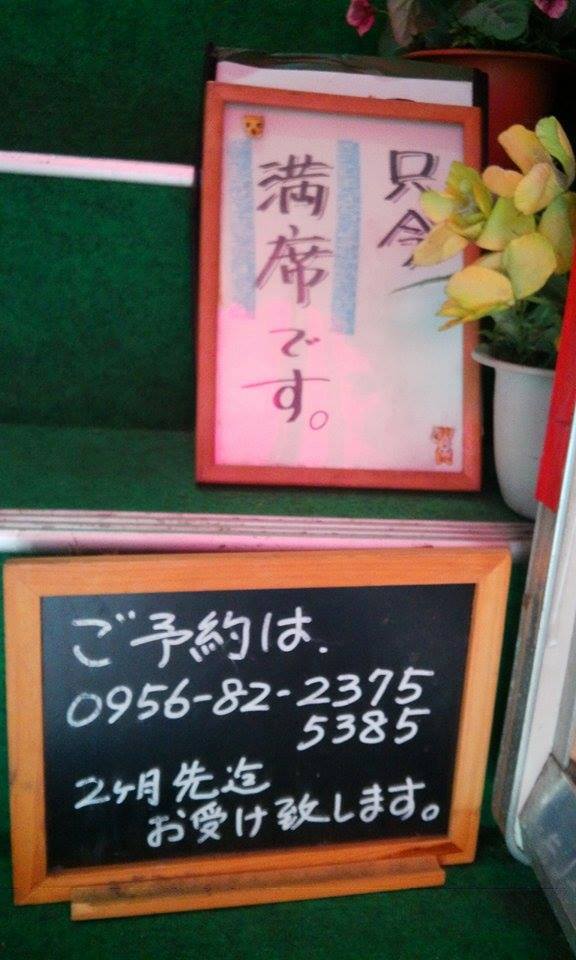 只今
満席です。
ご予約は、
0956-82-2375
5385
2ヶ月先迄
お受け致します。